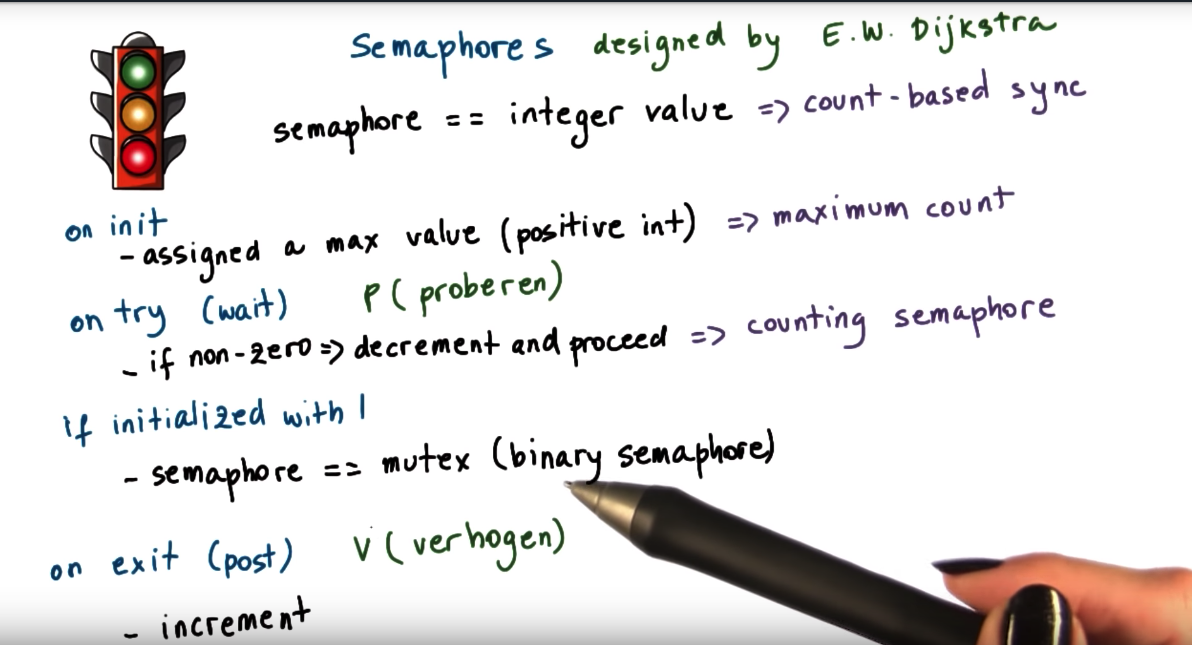 Semaphores designed by E.W. Dijkstra
semaphore == integer value => count-based sync
on init
- assigned a max value (positive int) => maximum count
on try (wait) P (proberen)
- if non-zero => decrement and proceed => counting semaphore
if initialized with 1
- semaphore == mutex (binary semaphore)
on exit (post) V (verhogen)
- increment